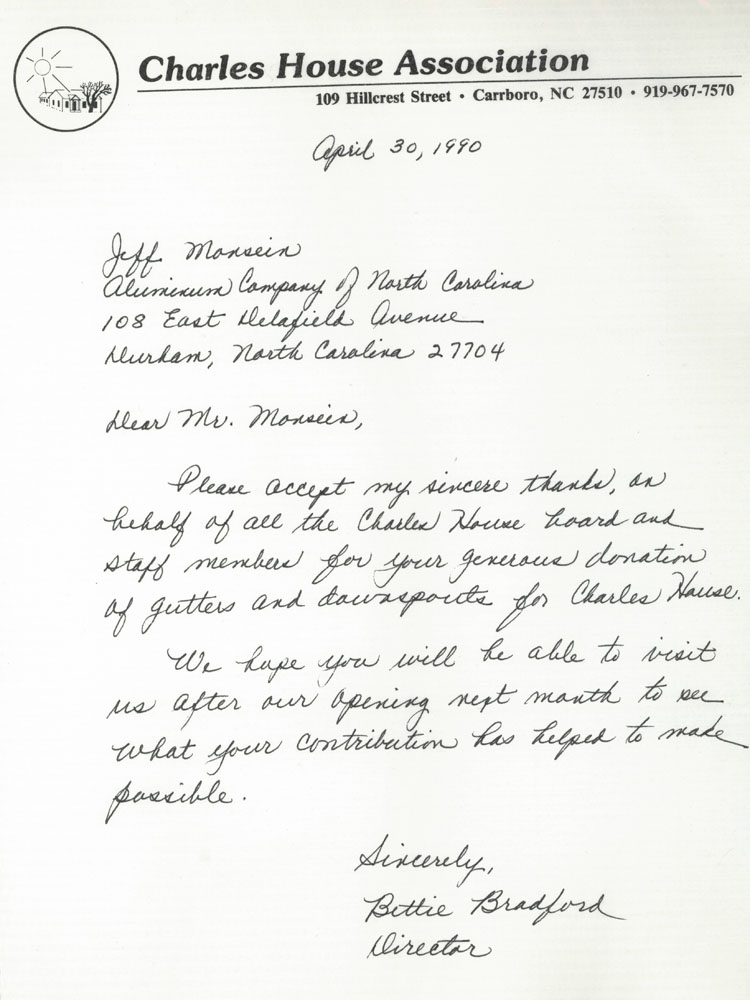 Charles House Association
109 Hillcrest Street • Carrboro, NC 27510 • 919-967-7570
April 30, 1990
Jeff Monsein
Aluminum Company of North Carolina
108 East Delafield Avenue
Durham, North Carolina 27704
Dear Mr. Monsein,
Please accept my sincere thanks, on
behalf of all the Charles House board and
staff members for your generous donation
of gutters and downspouts for Charles House.
We hope you will be able to visit
us after our opening next month to see
what your contribution has helped to make
possible.
Sincerely,
Bettie Bradford
Director